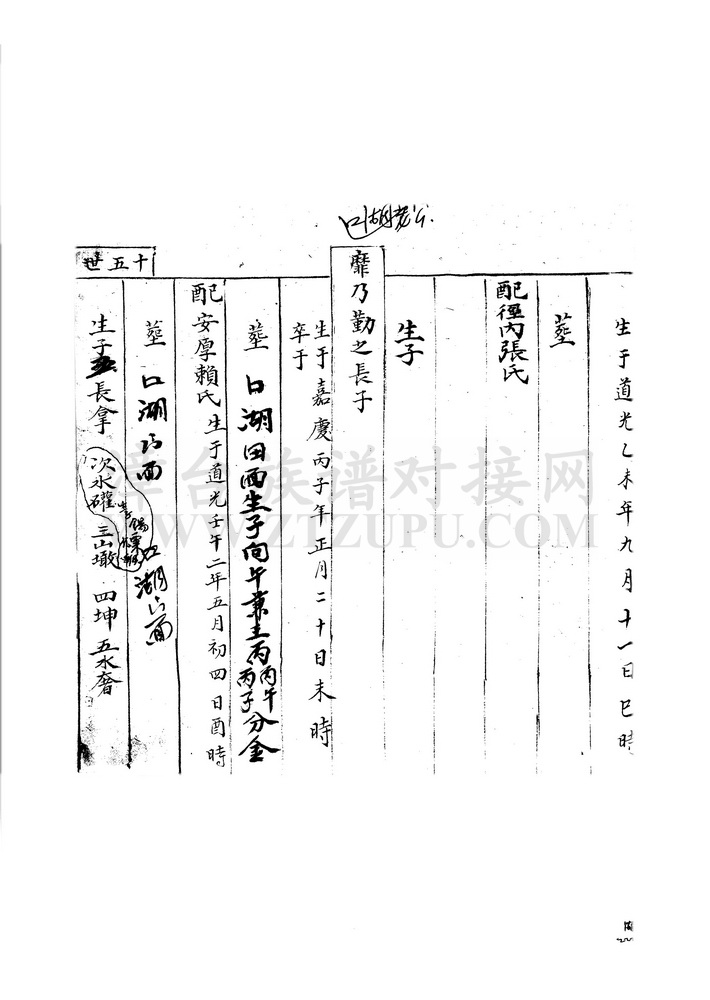 口湖老公
生于道光乙未年九月十一日巳時
塟
配徑內張氏
生子
靡乃勤之長子
生于嘉慶丙子年正月二十日未時
卒于
塟 口湖田面生子向午兼壬丙丙午丙子分金
配安厚賴氏 生于道光壬午二年五月初四日酉時
十五世
塟 口湖 面 口湖 面
生子五長拿 次水礶 三山墩 四坤 五水奢
漳台族谱对接网
WWW.ZTZUPU.COM